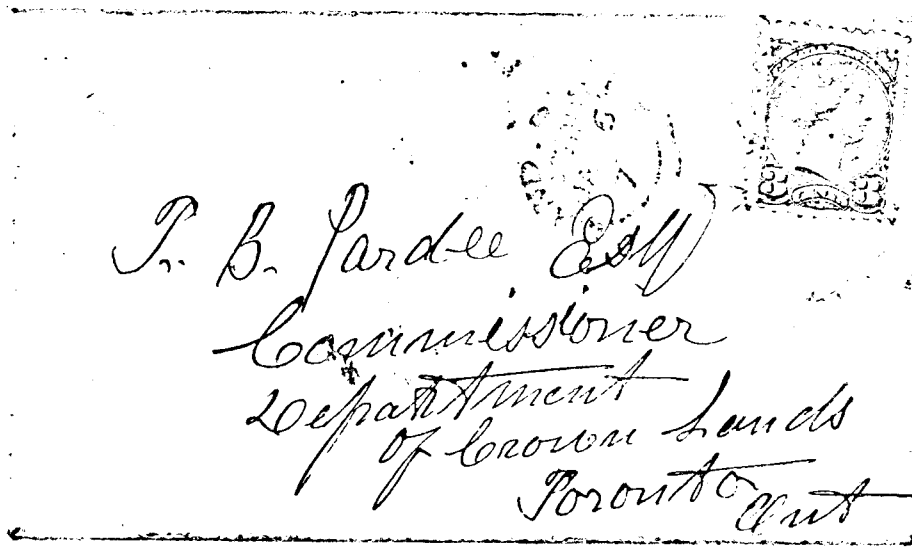 T. B. Pardee Esq
Commissioner
Department
of Crown Lands
Toronto Ont